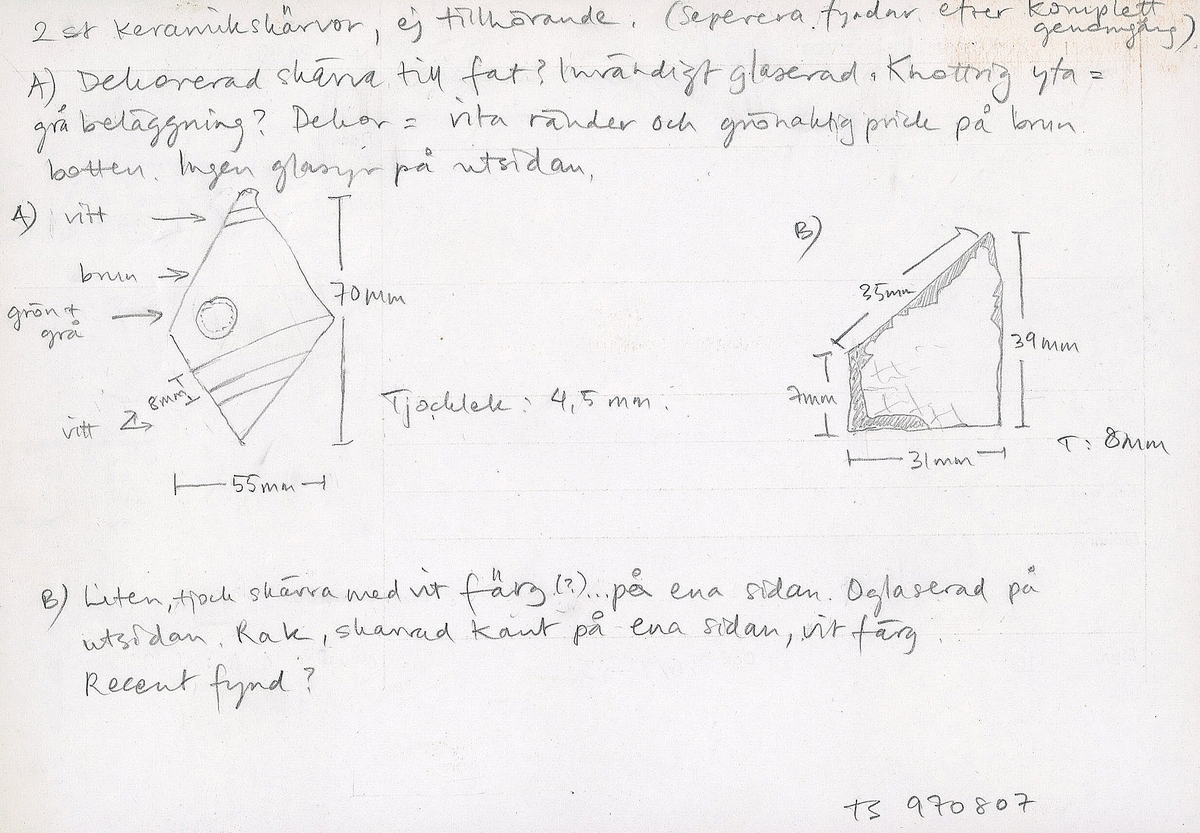 2 st keramikskärvor, ej tillhörande. (Seperera fyndnr efter komplett
genomgång)
A) Dekorerad skärva till fat? Invändigt glaserad. Knottrig yta =
grå beläggning? Dekor = vita ränder och grönaktig prick på brun
botten. Ingen glasyr på utsidan.
A) vitt
brun
grön +
grå
8mm
vitt
70mm
55mm
Tjocklek: 4,5 mm.
B)
35mm
39mm
7mm
31mm
T: 8mm
B) Liten, tjock skärva med vit färg (?)... på ena sidan. Oglaserad på
utsidan. Rak, skarrad kant på ena sidan, vit färg.
Recent fynd?
TS 970807